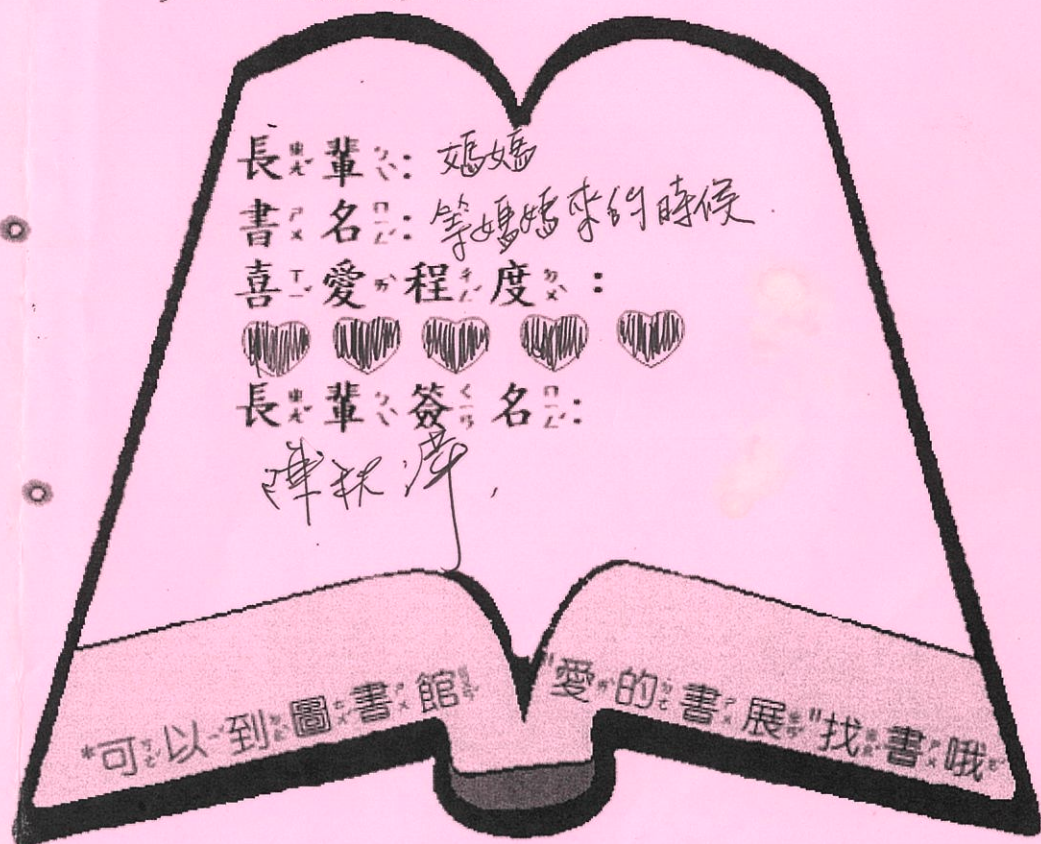 長輩:媽媽
書名:等媽媽來的時候
喜愛程度:
長輩簽名:
陳秋
*可以到圖書館"愛的書展"找書哦